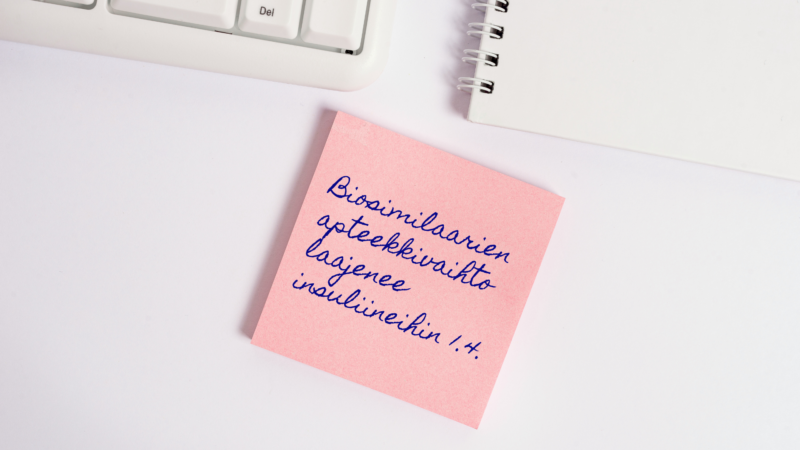 Del
Biosimilaarien
apteekkivaihto
laajenee
insuliineihin 1.4.